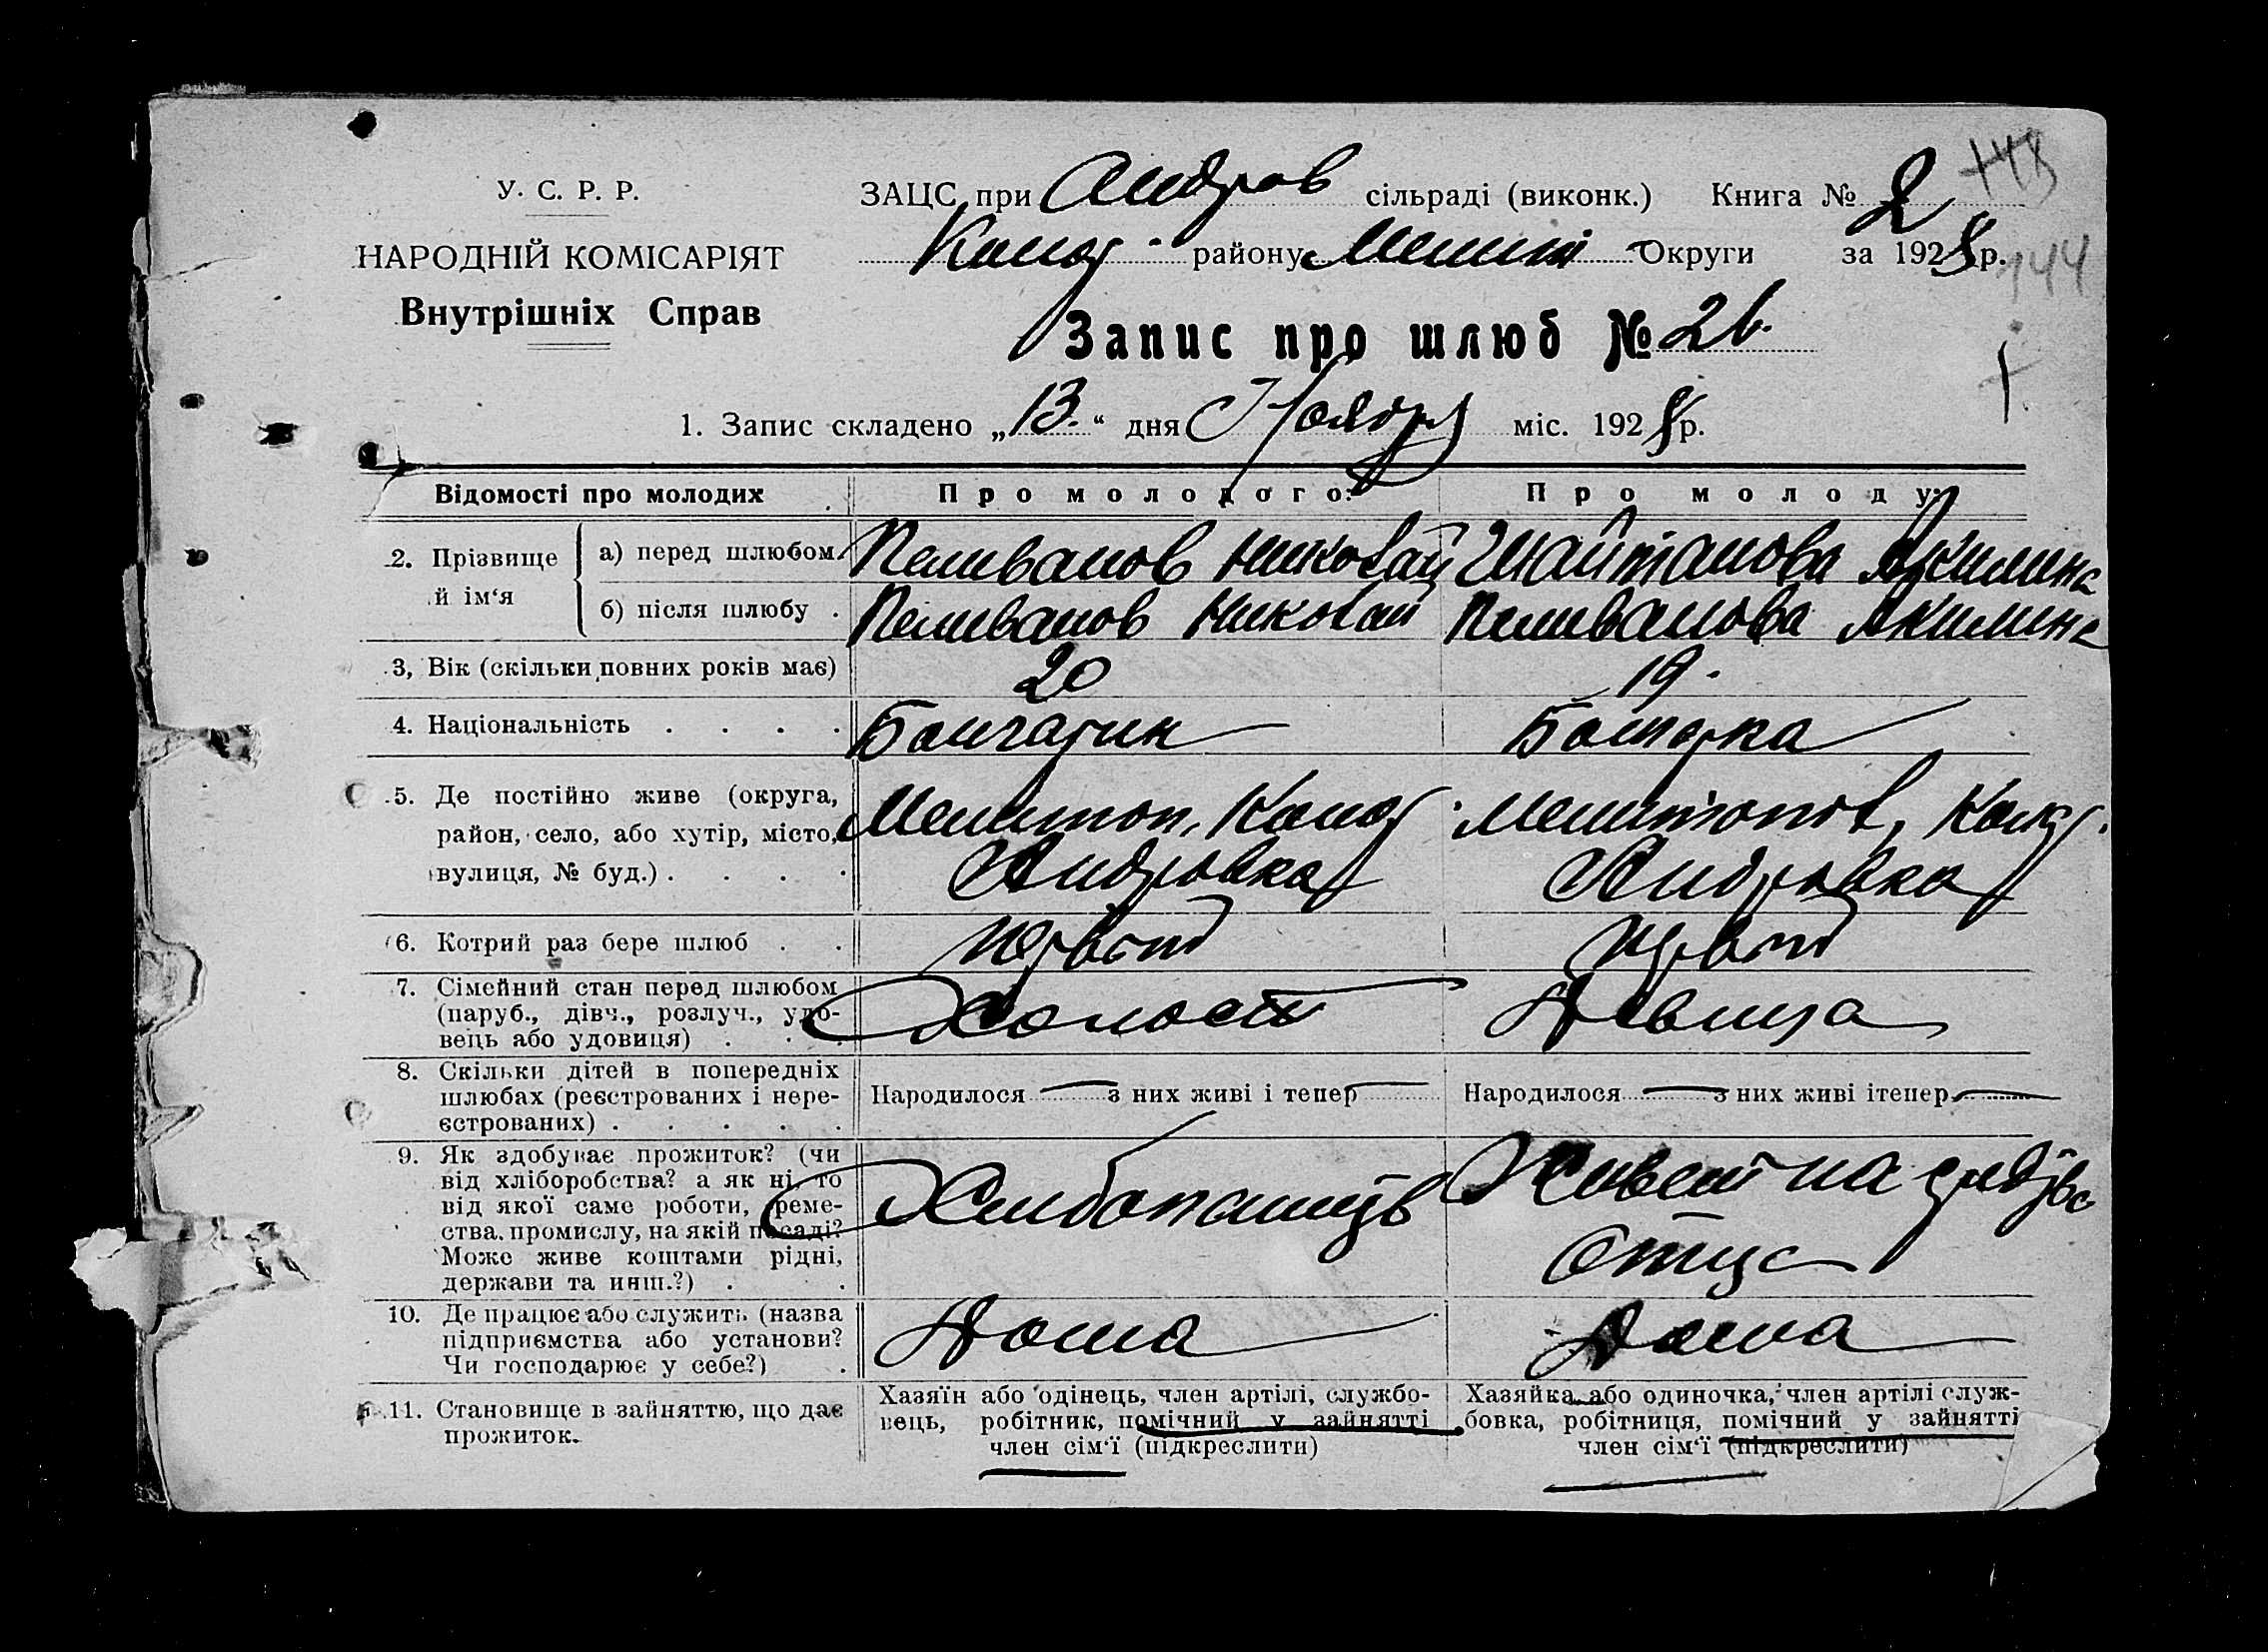 У. С. Р. Р.
НАРОДНІЙ КОМІСАРІЯТ
Внутрішніх Справ
ЗАЦС при Андров сільраді (виконк.) Книга № 2
району Мелит Округи за 1928 р.
144
Запис про шлюб № 26.
1. Запис складено „13.“ дня Ноября міс. 1928 р.
Відомості про молодих Про молодого: Про молоду:
2. Прізвище й ім‘я
а) перед шлюбом. Пеливанов Николай Шайтанова Акилина
б) після шлюбу . Пеливанов Николай Пеливанова Акилина
3, Вік (скільки повних років має) 20 19.
4. Національність . . . . Болгарин Болгарка
5. Де постійно живе (округа, Мелитоп, Мелитопол,
район, село, або хутір, місто, Андровка Андровка
вулиця, № буд.) . . . .
6. Котрий раз бере шлюб . . Первый Первый
7. Сімейний стан перед шлюбом Холост Девица
(паруб., дівч., розлуч., удо-
вець або удовиця) . . .
8. Скільки дітей в попередніх
шлюбах (реєстрованих і нере- Народилося — з них живі і тепер — Народилося — з них живі ітепер —
єстрованих) . . . . .
9. Як здобуває прожиток? (чи
від хліборобства? а як ні, то
від якої саме роботи, реме- Хлибопашец Живет на средства
ства, промислу, на якій посаді? Отца
Може живе коштами рідні,
держави та инш.?) . .
10. Де працює або служить (назва
підприємства або установи? Дома Дома
Чи господарює у себе?) .
11. Становище в зайняттю, що дає
прожиток.
Хазяїн або одінець, член артілі, службо-
вець, робітник, помічний у зайнятті
член сім‘ї (підкреслити)
Хазяйка або одиночка, член артілі служ-
бовка, робітниця, помічний у зайнятті
член сім‘ї (підкреслити)